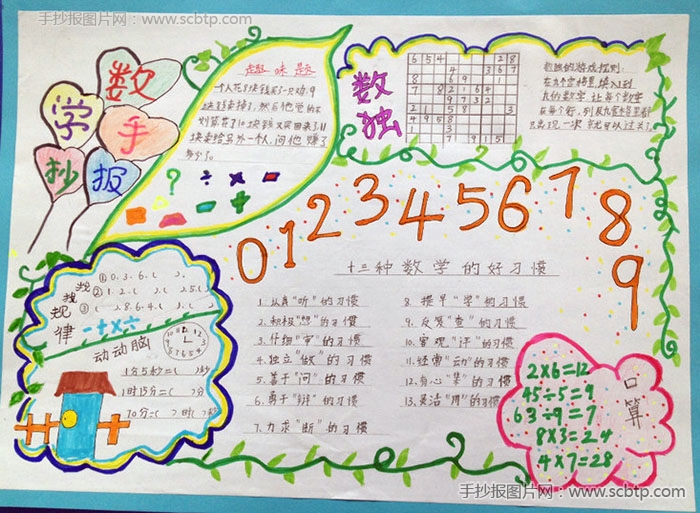 手抄报图片网:www.scbtp.com
数
学
手
抄
报
趣味题
一个人花8块钱买一只鸡,9
块
然后他觉的不
划算花了10块钱又买回来了,11
块卖给另外一个人,问他赚了
多少?
? ÷ × -
+
数独
6 5 4 2 8
4 3 6 7
8 6 9 1
7 8 2 1 6 4
9 7 3 3 2
2 1 5 8 3
4 9 5 8
1 3
7
数独的游戏规则:
在九个宫格里,填入1到
九的数字,让每个数字
在每个行,列及九宫格里都
只出现一次就可以过关了。
0 1 2 3 4 5 6 7 8 9
十三种数学的好习惯
1.认真"听"的习惯
2.积极"想"的习惯
3.仔细"审"的习惯
4.独立"做"的习惯
5.善于"问"的习惯
6.勇于"辩"的习惯
7.力求"断"的习惯
8.提早"学"的习惯
9.反复"查"的习惯
10.客观"评"的习惯
11.经常"动"的习惯
12.有心"集"的习惯
13.灵活"用"的习惯
找规律
①0.3.6.( ).
②1.2.( ). 25.( )
③ 2.8.6.4.( ).( )
一十×六
动动脑
1分5秒=( )秒
1时15分=( )分
70分=( )时( )分
口算
2×6=12
45÷5=9
63÷9=7
8×3=24
4×7=28
手抄报图片网:www.scbtp.com